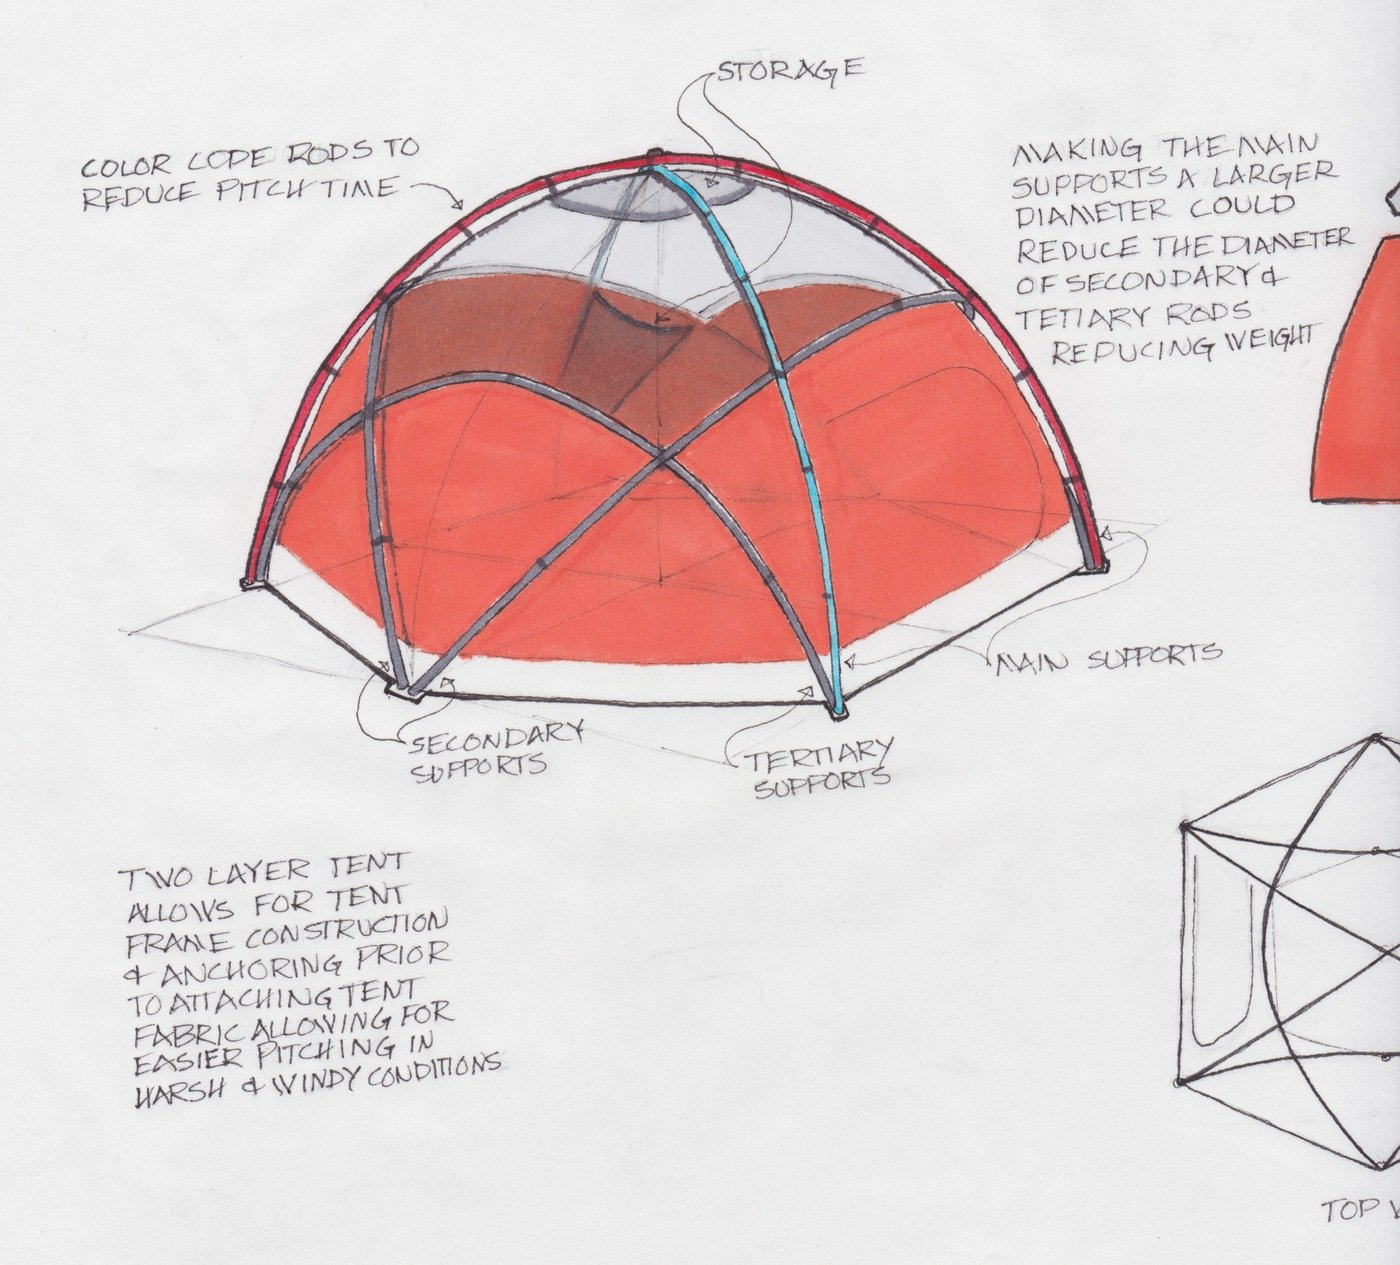 STORAGE
COLOR CODE RODS TO
REDUCE PITCH TIME
MAKING THE MAIN
SUPPORTS A LARGER
DIAMETER COULD
REDUCE THE DIAMETER
OF SECONDARY &
TETIARY RODS
REDUCING WEIGHT
MAIN SUPPORTS
SECONDARY
SUPPORTS
TERTIARY
SUPPORTS
TWO LAYER TENT
ALLOWS FOR TENT
FRAME CONSTRUCTION
& ANCHORING PRIOR
TO ATTACHING TENT
FABRIC ALLOWING FOR
EASIER PITCHING IN
HARSH & WINDY CONDITIONS
TOP